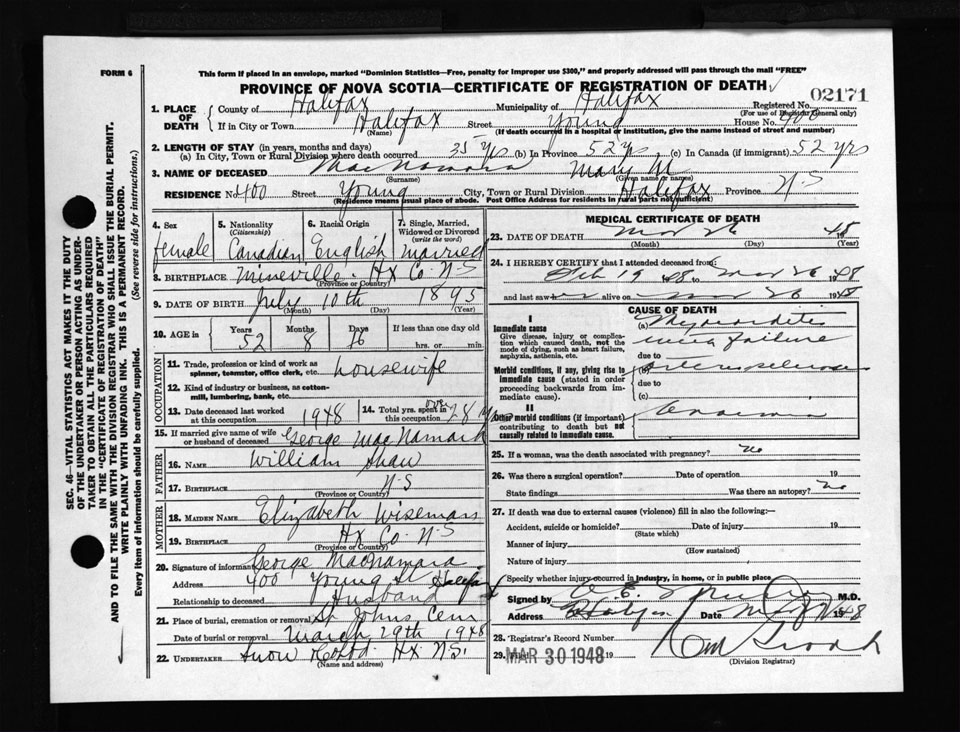 FORM 6
This form if placed in an envelope, marked "Dominion Statistics—Free, penalty for improper use $300," and properly addressed will pass through the mail "FREE"
PROVINCE OF NOVA SCOTIA—CERTIFICATE OF REGISTRATION OF DEATH
02171
1. PLACE OF DEATH
County of Halifax Municipality of Halifax Registered No.
(For use of Registrar General only)
If in City or Town Halifax Street Young House No. 400
(Name) (If death occurred in a hospital or institution, give the name instead of street and number)
2. LENGTH OF STAY (in years, months and days)
(a) In City, Town or Rural Division where death occurred 35 yrs (b) In Province 52 yrs (c) In Canada (if immigrant) 52 yrs
3. NAME OF DECEASED MacNamara Mary M
(Surname) (Given name or names)
RESIDENCE No. 400 Street Young City, Town or Rural Division Halifax Province N.S
(Residence means usual place of abode. Post Office Address for residents in rural parts not sufficient)
4. Sex
female
5. Nationality
(Citizenship)
Canadian
6. Racial Origin
English
7. Single, Married, Widowed or Divorced
(write the word)
married
8. BIRTHPLACE Mineville - Hx Co N-S
(Province or Country)
9. DATE OF BIRTH July 10th 1895
(Month) (Day) (Year)
10. AGE in
Years Months Days If less than one day old
52 8 16 hrs. or min.
OCCUPATION
11. Trade, profession or kind of work as spinner, teamster, office clerk, etc. housewife
12. Kind of industry or business, as cotton-mill, lumbering, bank, etc.
13. Date deceased last worked at this occupation 1948
14. Total yrs. spent in this occupation over 28 yrs
15. If married give name of wife or husband of deceased George MacNamara
FATHER
16. NAME William Shaw
17. BIRTHPLACE N-S
(Province or Country)
MOTHER
18. MAIDEN NAME Elizabeth Wiseman
19. BIRTHPLACE Hx Co. N-S
(Province or Country)
20. Signature of informant George MacNamara
Address 400 Young St Halifax
Relationship to deceased Husband
21. Place of burial, cremation or removal St Johns Cem
Date of burial or removal March 29th 1948
22. UNDERTAKER Snow Hx N.S.
(Name and address)
MEDICAL CERTIFICATE OF DEATH
23. DATE OF DEATH Mar 26 48
(Month) (Day) (Year)
24. I HEREBY CERTIFY that I attended deceased from:
Feb 19 48 to Mar 26 1948
and last saw her alive on Mar 26 1948
CAUSE OF DEATH
I
Immediate cause
Give disease, injury or complication which caused death, not the mode of dying, such as heart failure, asphyxia, asthenia, etc.
(a) Myocarditis
failure
due to
Morbid conditions, if any, giving rise to immediate cause (stated in order proceeding backwards from immediate cause).
(b) arteriosclerosis
due to
(c)
II
Other morbid conditions (if important) contributing to death but not causally related to immediate cause.
25. If a woman, was the death associated with pregnancy? no
26. Was there a surgical operation? Date of operation 19
State findings Was there an autopsy? no
27. If death was due to external causes (violence) fill in also the following:—
Accident, suicide or homicide? Date of injury 19
(State which)
Manner of injury
(How sustained)
Nature of injury
Specify whether injury occurred in industry, in home, or in public place
Signed by M.D.
Address Halifax Date 1948
28. Registrar's Record Number
29. MAR 30 1948 19
(Division Registrar)
SEC. 46—VITAL STATISTICS ACT MAKES IT THE DUTY
OF THE UNDERTAKER OR PERSON ACTING AS UNDER-
TAKER TO OBTAIN ALL THE PARTICULARS REQUIRED
IN THE "CERTIFICATE OF REGISTRATION OF DEATH"
AND TO FILE THE SAME WITH THE DIVISION REGISTRAR WHO SHALL ISSUE THE BURIAL PERMIT.
WRITE PLAINLY WITH UNFADING INK. THIS IS A PERMANENT RECORD.
Every item of information should be carefully supplied. (See reverse side for instructions.)